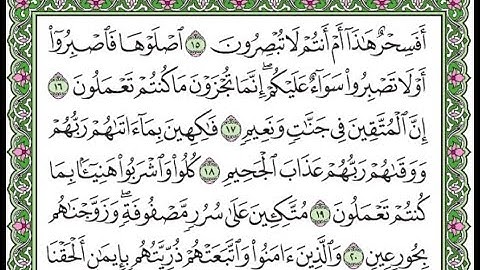 أَفَسِحْرٌ هَٰذَآ أَمْ أَنتُمْ لَا تُبْصِرُونَ ١٥ ٱصْلَوْهَا فَٱصْبِرُوٓا۟
أَوْ لَا تَصْبِرُوا۟ سَوَآءٌ عَلَيْكُمْ ۖ إِنَّمَا تُجْزَوْنَ مَا كُنتُمْ تَعْمَلُونَ ١٦
إِنَّ ٱلْمُتَّقِينَ فِى جَنَّٰتٍ وَنَعِيمٍ ١٧ فَٰكِهِينَ بِمَآ ءَاتَىٰهُمْ رَبُّهُمْ
وَوَقَىٰهُمْ رَبُّهُمْ عَذَابَ ٱلْجَحِيمِ ١٨ كُلُوا۟ وَٱشْرَبُوا۟ هَنِيٓـًٔۢا بِمَا
كُنتُمْ تَعْمَلُونَ ١٩ مُتَّكِـِٔينَ عَلَىٰ سُرُرٍ مَّصْفُوفَةٍ ۖ وَزَوَّجْنَٰهُم
بِحُورٍ عِينٍ ٢٠ وَٱلَّذِينَ ءَامَنُوا۟ وَٱتَّبَعَتْهُمْ ذُرِّيَّتُهُم بِإِيمَٰنٍ أَلْحَقْنَا